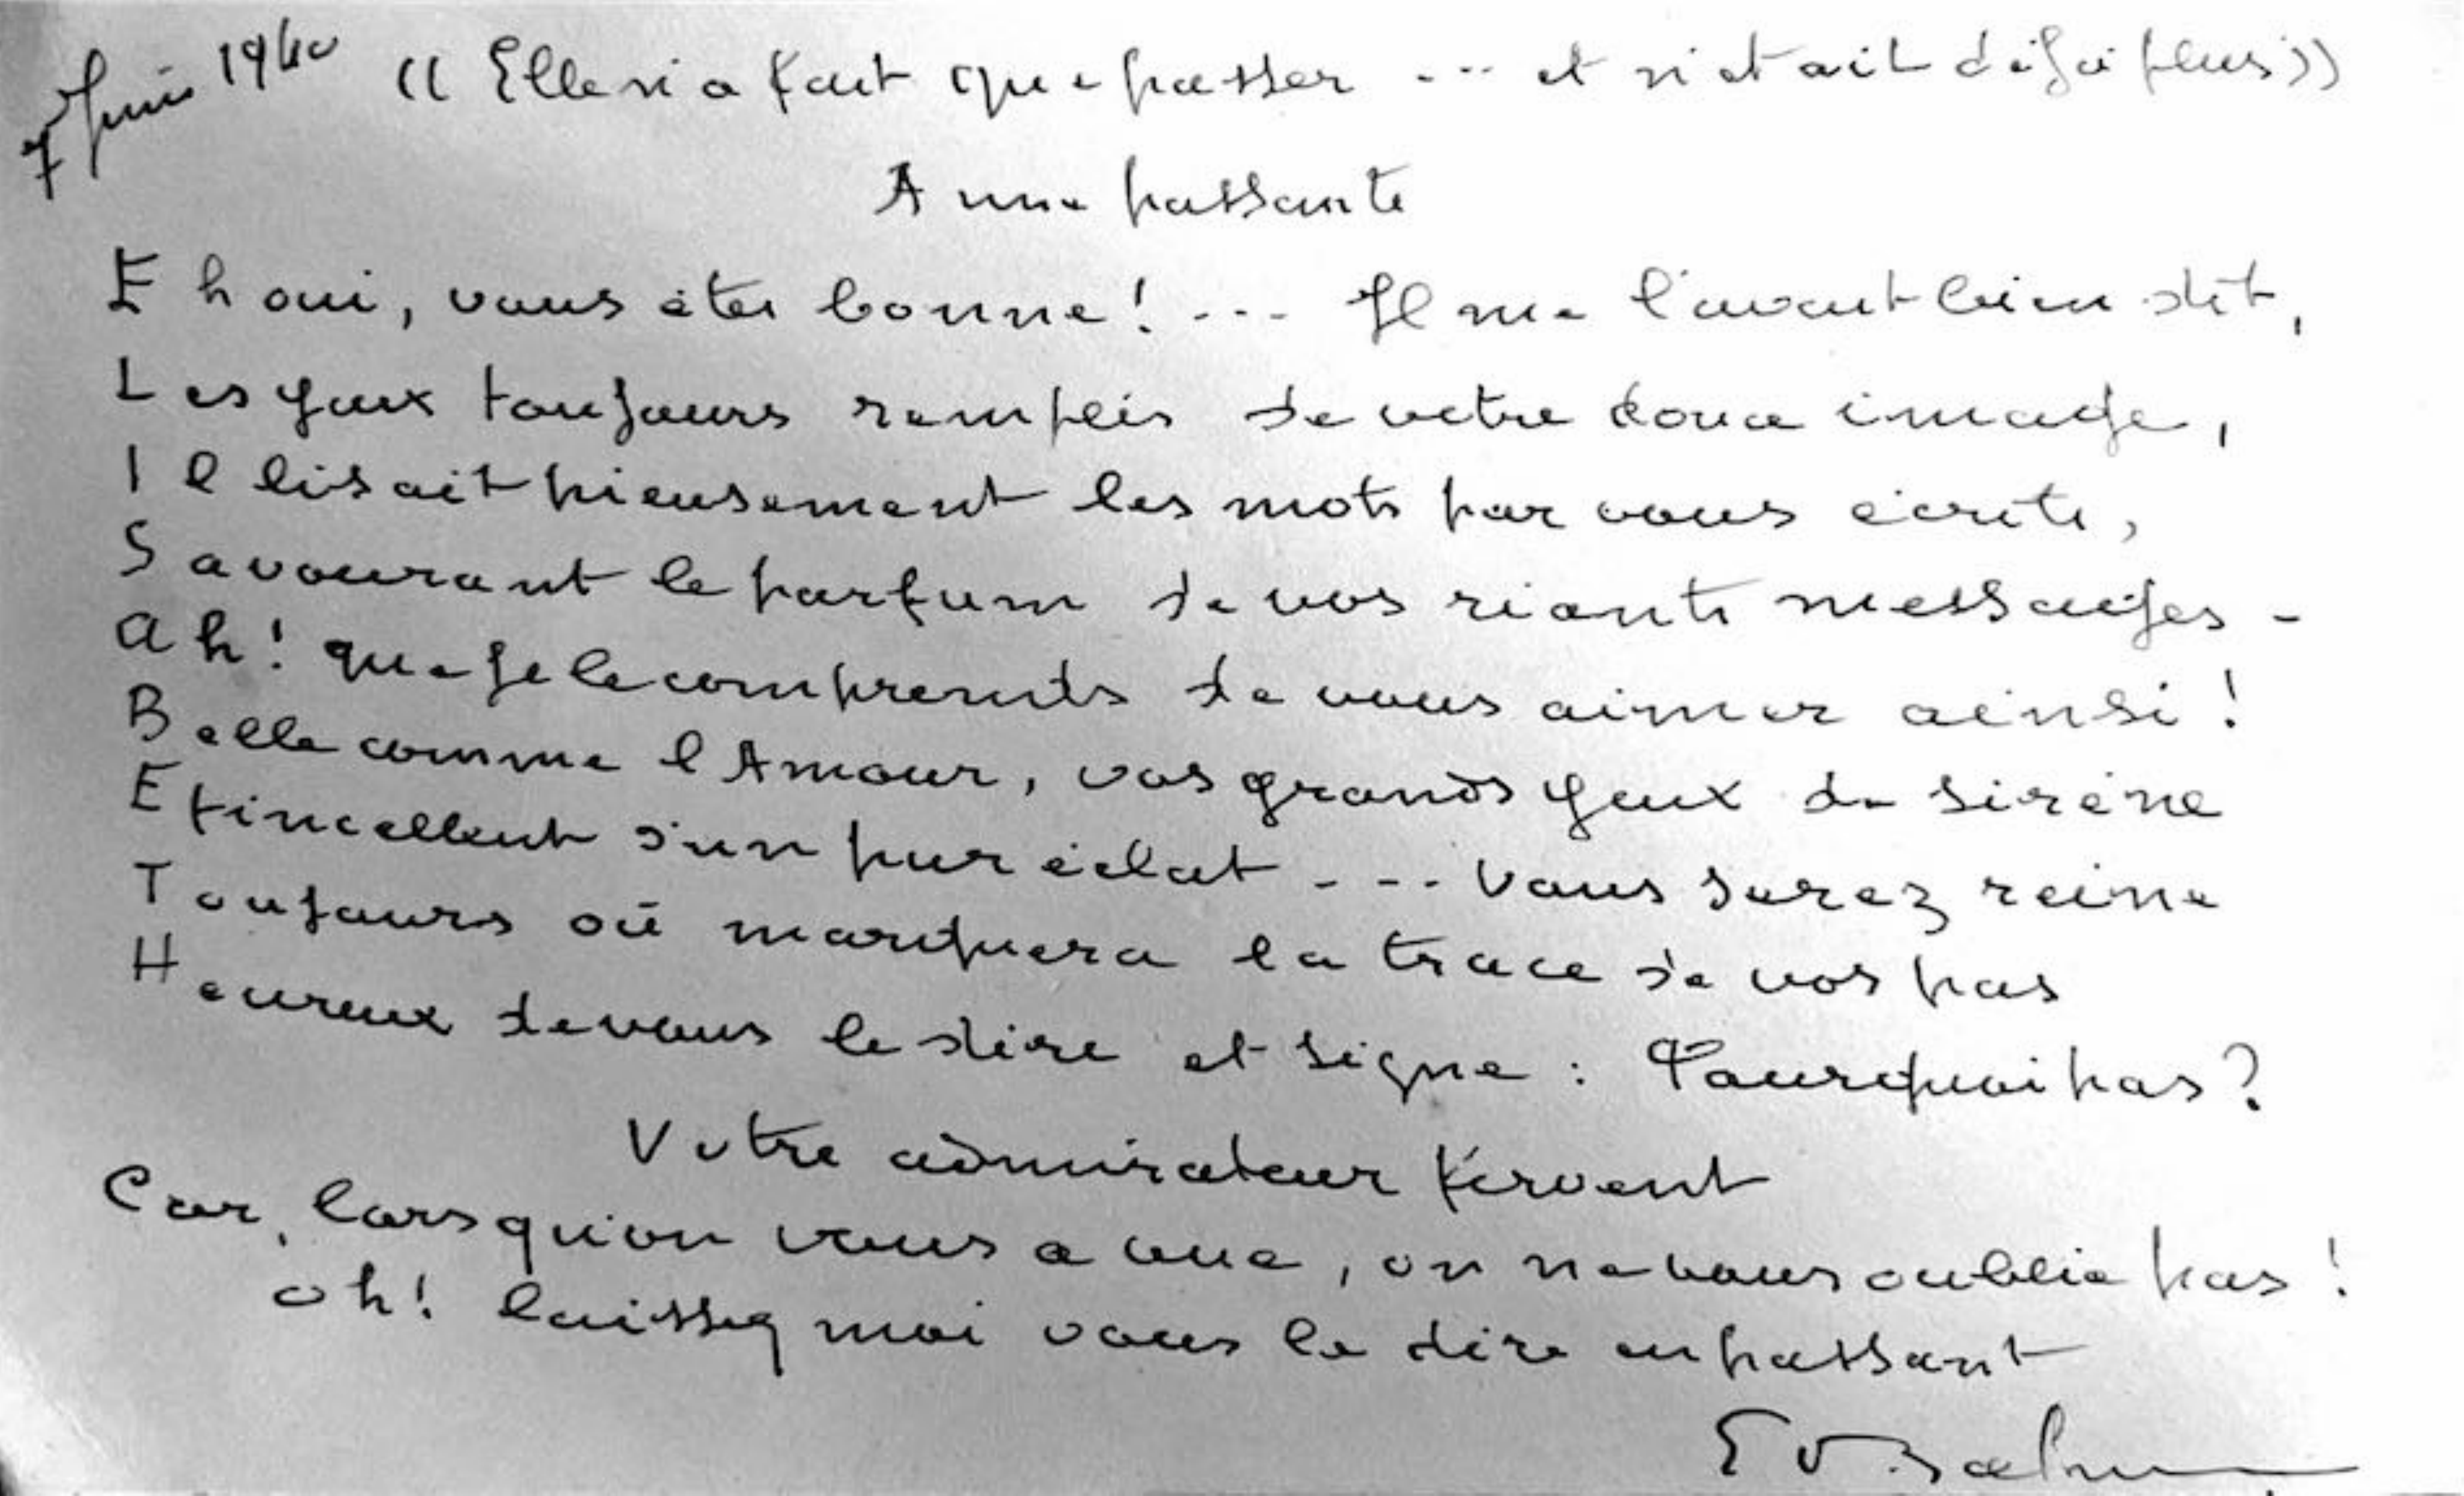 7 Juin 1940
« Elle n'a fait que passer ... et n'était déjà plus »
A une passante
Eh oui, vous êtes bonne! ... Il me l'avait bien dit,
Les yeux toujours remplis de votre douce image,
Il lisait pieusement les mots par vous écrits,
Savourant le parfum de vos riants messages -
Ah! que je le comprends de vous aimer ainsi!
Belle comme l'Amour, vos grands yeux de sirène
Etincellent d'un pur éclat ... Vous serez reine
Toujours où marquera la trace de vos pas
Heureux de vous le dire et signe : Pourquoi pas?
Votre admirateur fervent
Car, lorsqu'on vous a vue, on ne vous oublie pas!
oh! laissez moi vous le dire en passant